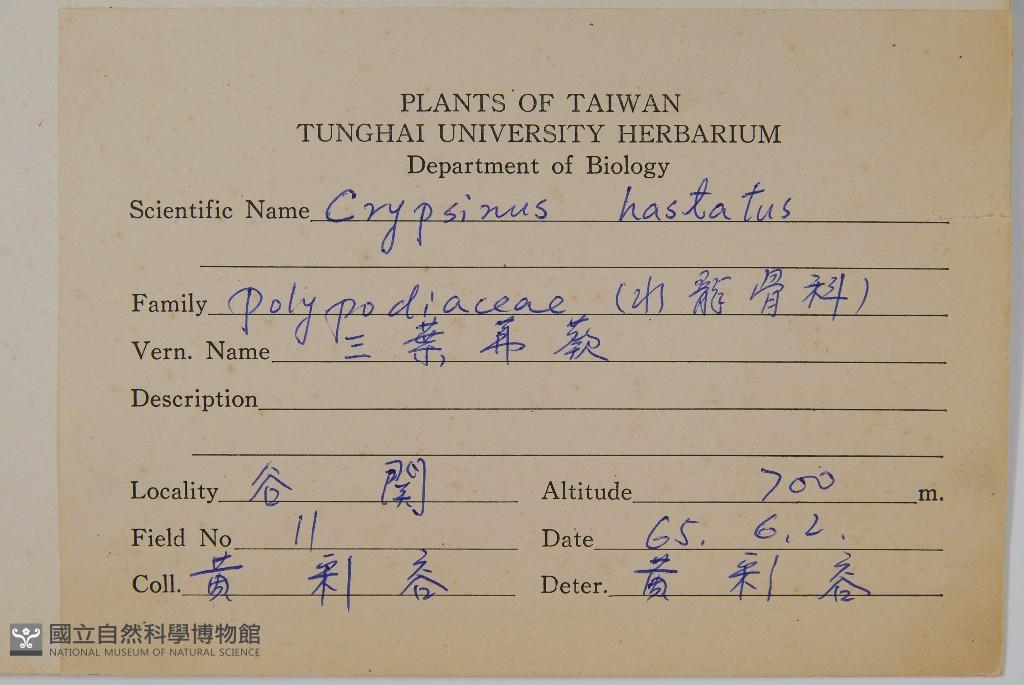 PLANTS OF TAIWAN
TUNGHAI UNIVERSITY HERBARIUM
Department of Biology
Scientific Name Crypsinus hastatus
Family Polypodiaceae (水龍骨科)
Vern. Name 三葉茀蕨
Description
Locality 谷関 Altitude 700 m.
Field No 11 Date 65. 6. 2.
Coll. 黃利容 Deter. 黃利容
國立自然科學博物館
NATIONAL MUSEUM OF NATURAL SCIENCE